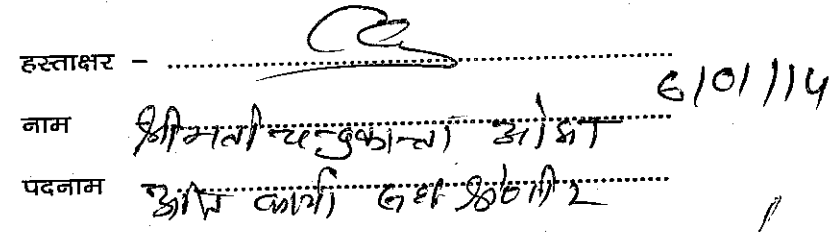 हस्ताक्षर -
6/01/14
नाम श्रीमती चन्द्रकान्ता ओझा
पदनाम श्रेणी 2